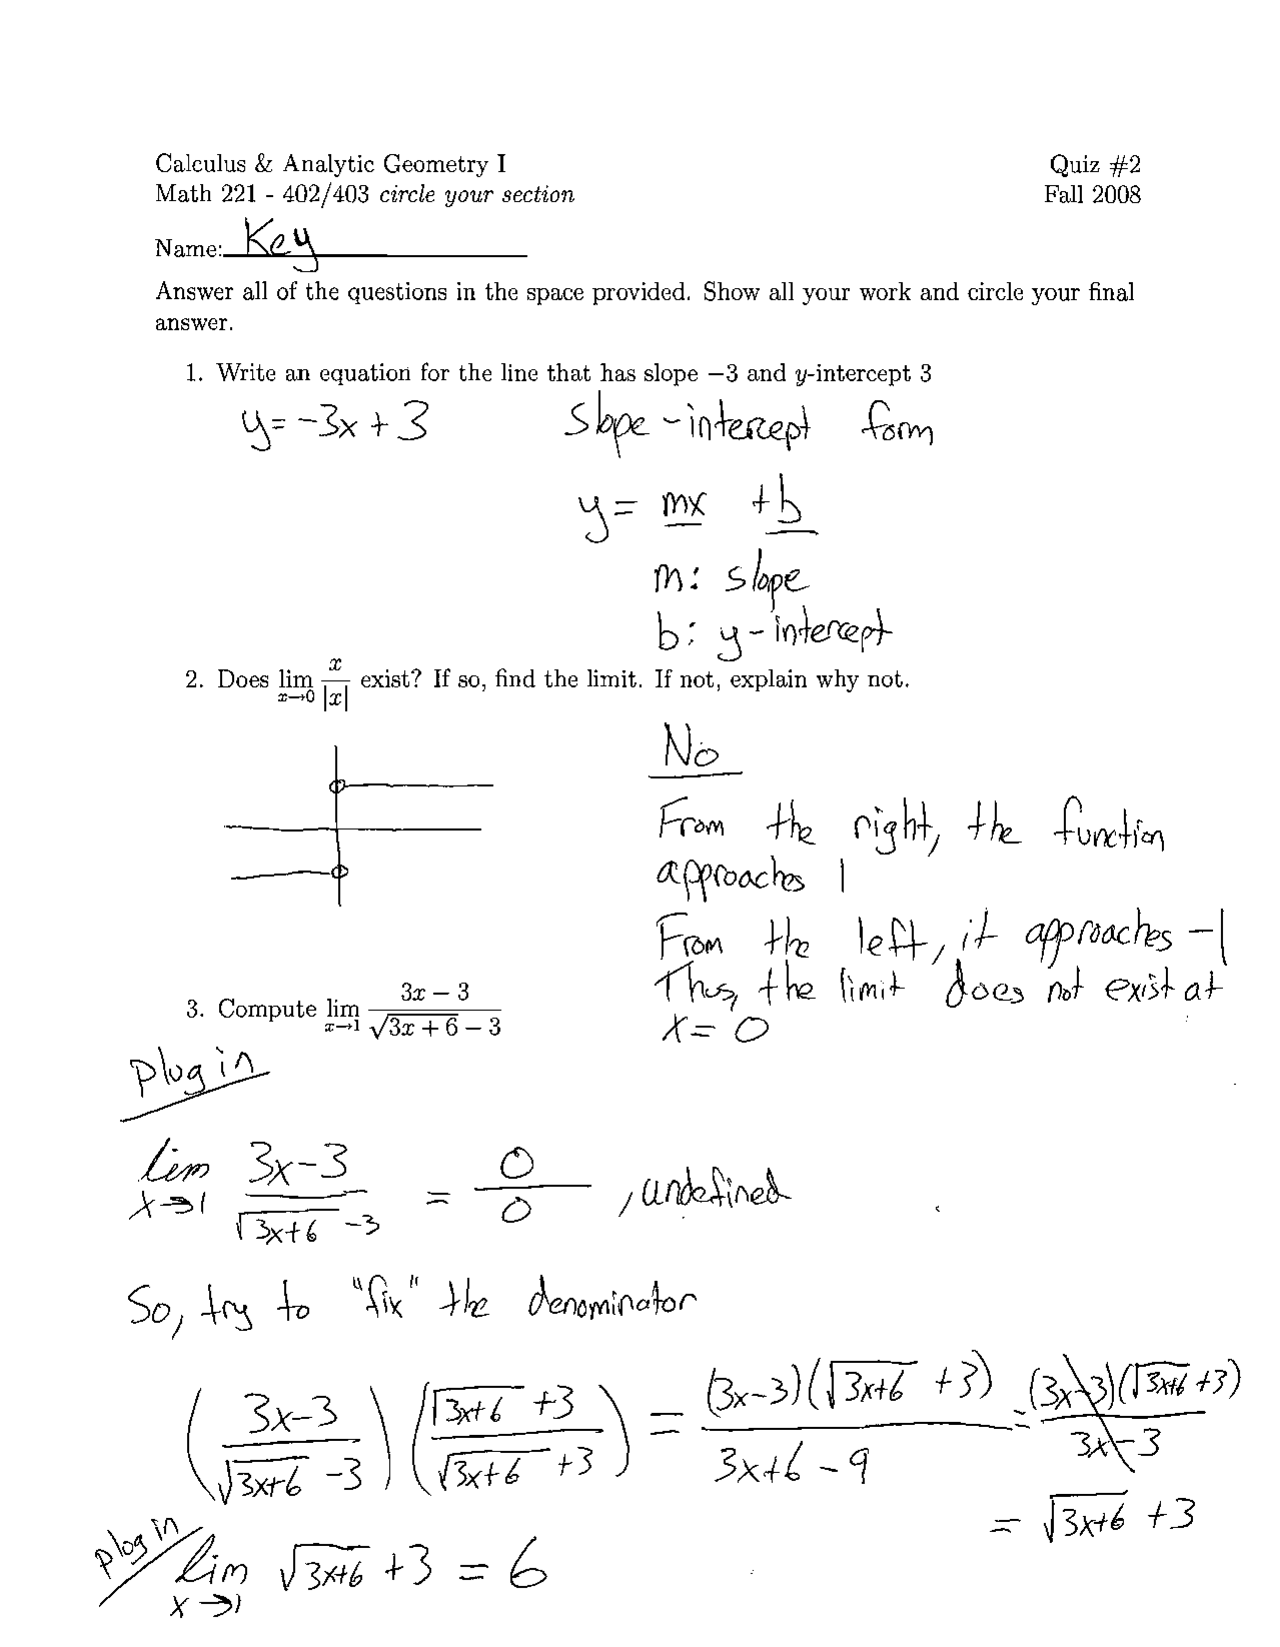 Calculus & Analytic Geometry I Quiz #2
Math 221 - 402/403 circle your section Fall 2008
Name: Key
Answer all of the questions in the space provided. Show all your work and circle your final
answer.
1. Write an equation for the line that has slope −3 and y-intercept 3
y = -3x + 3
slope-intercept form
y = mx + b
m: slope
b: y-intercept
2. Does lim x→0 x/|x| exist? If so, find the limit. If not, explain why not.
No
From the right, the function
approaches 1
From the left, it approaches -1
Thus, the limit does not exist at
x = 0
3. Compute lim x→1 (3x − 3)/(√(3x + 6) − 3)
plug in
lim x→1 (3x-3)/(√(3x+6) -3) = 0/0, undefined
So, try to "fix" the denominator
((3x-3)/(√(3x+6) -3)) ((√(3x+6) +3)/(√(3x+6) +3)) = (3x-3)(√(3x+6) +3)/(3x+6-9) = (3x-3)(√(3x+6) +3)/(3x-3)
= √(3x+6) +3
plug in
lim x→1 √(3x+6) +3 = 6